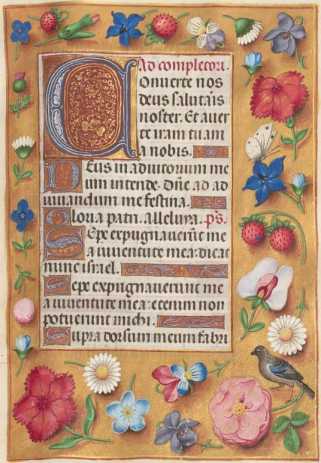 Ad completori.
Onuerte nos
deus salutaris
noster. Et auer
te iram tuam
a nobis.
Eus in adiutorium me
um intende. Dñe ad ad
iuuandum me festina.
Gloria patri. alleluya. ps.
Sepe expugnauerūt me
a iuuentute mea: dicat
nunc israel.
Sepe expugnauerunt me
a iuuentute mea: etenim non
potuerunt michi.
Supra dorsum meum fabri